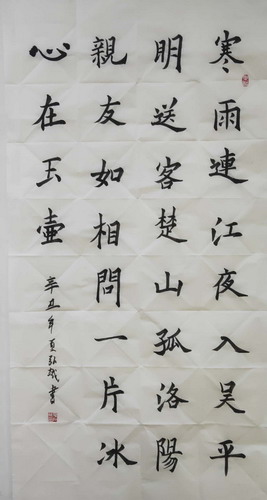 寒雨連江夜入吳平
明送客楚山孤洛陽
親友如相問一片冰
心在玉壺
辛丑年夏書